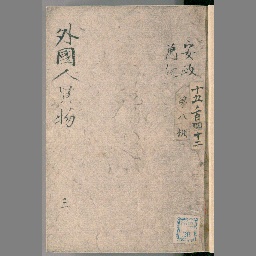 安政
萬延
十五ノ百四十二
第八棚
外國人買物
三